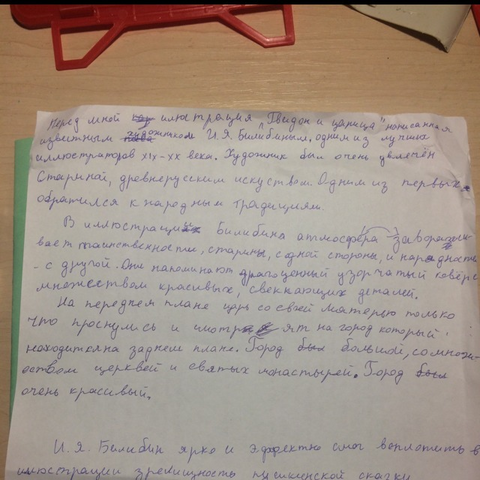 Перед мной иллюстрация „Гвидон и царица" написанная
известным художником И.Я. Билибиным, одним из лучших
иллюстраторов XIX-XX века. Художник был очень увлечён
Стариной, древнерусским искуством. Одним из первых
обратился к народным традициям.
В иллюстрациях Билибина атмосфера заворажы-
вает таинственности, старины, с одной стороны, и народность
- с другой. Они напоминают драгоценный узорчатый ковёр с
множеством красивых, сверкающих деталей.
На переднем плане царь со своей матерью только
что проснулись и смотрят на город который
находится на заднем плане. Город был большой, со множе-
ством церквей и святых монастырей. Город был
очень красивый.
И.Я. Билибин ярко и эффектно смог воплотить в
иллюстрации зрелищность пушкинской сказки